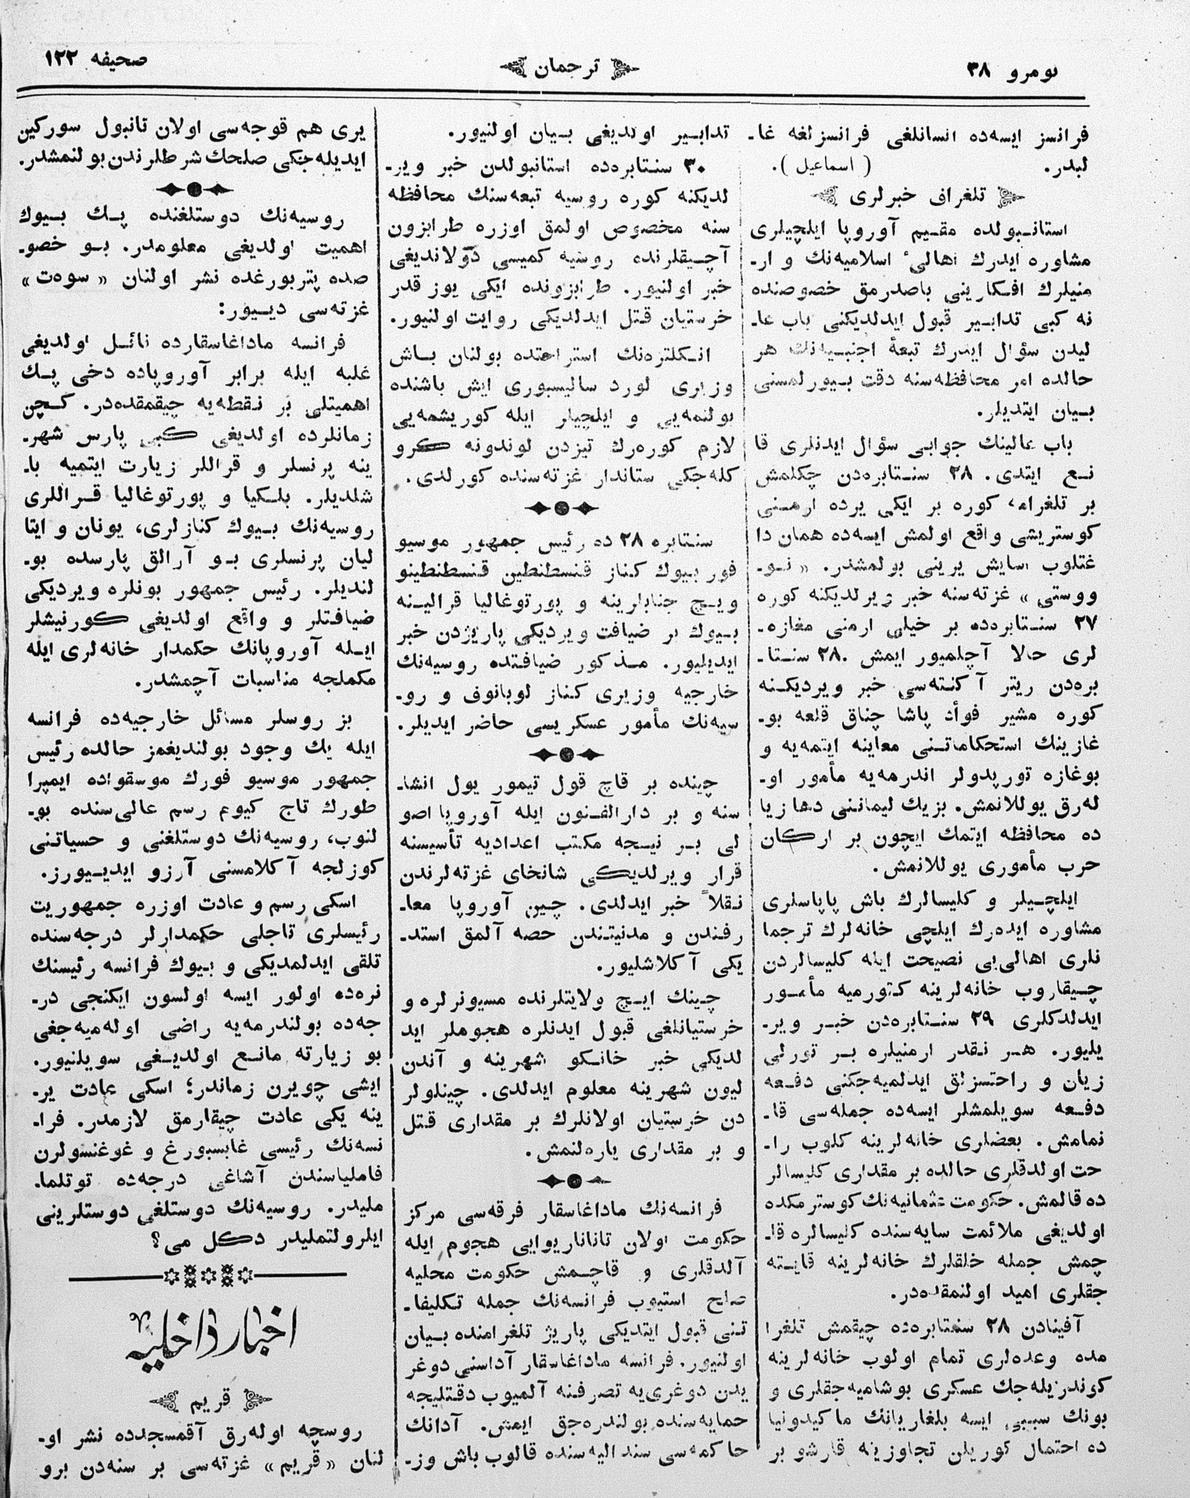 نومرو ۳۸
ترجمان
صحیفه ۱۲۳
فرانسز ایسه‌ده انسانلغی فرانسزلغه غا-
لبدر. ( اسماعیل ).
تلغراف خبرلری
استانبولده مقیم آوروپا ایلچیلری
مشاوره ایدرك اهالیٔ اسلامیه‌نك و ار-
منیلرك افکارینی باصدرمق خصوصنده
نه کبی تدابیر قبول ایدلدیکنی باب عا-
لیدن سؤال ایدرك تبعهٔ اجنبیه‌نك هر
حالده امر محافظه‌سنه دقت بیورلمسنی
بیان ایتدیلر.
باب عالینك جوابی سؤال ایدنلری قا
نع ایتدی. ۲۸ سنتابره‌دن چکلمش
بر تلغرامه کوره بر ایکی یرده ارمنی
کوستریشی واقع اولمش ایسه‌ده همان دا
غتلوب اسایش یرینی بولمشدر. « نو-
ووستی » غزته‌سنه خبر ویرلدیکنه کوره
۲۷ سنتابره‌ده بر خیلی ارمنی مغازه-
لری حالا آچلمیور ایمش. ۲۸ سنتا-
بره‌دن ریتر آکنته‌سی خبر ویردیکنه
کوره مشیر فوأد پاشا چناق قلعه بو-
غازینك استحکاماتنی معاینه ایتمه‌یه و
بوغازه تورپدولر اندرمه‌یه مأمور او-
له‌رق یوللانمش. بزیك لیماننی دها زیا
ده محافظه ایتمك ایچون بر ارکان
حرب مأموری یوللانمش.
ایلچیلر و کلیسالرك باش پاپاسلری
مشاوره ایده‌رك ایلچی خانه‌لرك ترجما
نلری اهالی‌یی نصیحت ایله کلیسالردن
چیقاروب خانه‌لرینه کتورمیه مأمور
ایدلدکلری ۲۹ سنتابره‌دن خبر ویر-
یلیور. هر نقدر ارمنیلره بر تورلی
زیان و راحتسزلق ایدلمیه‌جکنی دفعه
دفعه سویلمشلر ایسه‌ده جمله‌سی قا-
نمامش. بعضلری خانه‌لرینه کلوب را-
حت اولدقلری حالده بر مقداری کلیسالر
ده قالمش. حکومت عثمانیه‌نك کوسترمکده
اولدیغی ملائمت سایه‌سنده کلیسالره قا-
چمش جمله خلقلرك خانه‌لرینه قایته
جقلری امید اولنمقده‌در.
آفینادن ۲۸ سنتابره‌ده چیقمش تلغرا
مده وعده‌لری تمام اولوب خانه‌لرینه
کوندریله‌جك عسکری بوشامیه‌جقلری و
بونك سببی ایسه بلغاریانك ماکیدونیا
ده احتمال کوریلن تجاوزینه قارشو بر
تدابیر اولدیغی بیان اولنیور.
۳۰ سنتابره‌ده استانبولدن خبر ویر-
لدیکنه کوره روسیه تبعه‌سنك محافظه
سنه مخصوص اولمق اوزره طرابزون
آچیقلرنده روسیه کمیسی دولاندیغی
خبر اولنیور. طرابزونده ایکی یوز قدر
خرستیان قتل ایدلدیکی روایت اولنیور.
انکلتره‌نك استراحتده بولنان باش
وزیری لورد سالیسبوری ایش باشنده
بولنمه‌یی و ایلچیلر ایله کوریشمه‌یی
لازم کوره‌رك تیزدن لوندونه کرو
کله‌جکی ستاندار غزته‌سنده کورلدی.
سنتابره ۲۸ ده رئیس جمهور موسیو
فور بیوك کناز قنسطنطین قنسطنطینو
ویچ جنابلرینه و پورتوغالیا قرالینه
بیوك بر ضیافت ویردیکی پاریژدن خبر
ایدیلیور. مذکور ضیافتده روسیه‌نك
خارجیه وزیری کناز لوبانوف و رو-
سیه‌نك مأمور عسکریسی حاضر ایدیلر.
چینده بر قاچ قول تیمور یول انشا-
سنه و بر دارالفنون ایله آوروپا اصو
لی بر نیجه مکتب اعدادیه تأسیسنه
قرار ویرلدیکی شانخای غزته‌لرندن
نقلاً خبر ایدلدی. چین آوروپا معا-
رفندن و مدنیتندن حصه آلمق استد-
یکی آکلاشلیور.
چینك ایچ ولایتلرنده مسیونرلره و
خرستیانلغی قبول ایدنلره هجوملر اید
لدیکی خبر خانکو شهرینه و آندن
لیون شهرینه معلوم ایدلدی. چینلولر
دن خرستیان اولانلرك بر مقداری قتل
و بر مقداری یاره‌لنمش.
فرانسه‌نك ماداغاسقار فرقه‌سی مرکز
حکومت اولان تاناناریوایی هجوم ایله
آلدقلری و قاچمش حکومت محلیه
صلح استیوب فرانسه‌نك جمله تکلیفا-
تنی قبول ایتدیکی پاریژ تلغرامنده بیان
اولنیور. فرانسه ماداغاسقار آداسنی دوغر
یدن دوغری‌یه تصرفنه آلمیوب دقتلیجه
حمایه‌سنده بولندره‌جق ایمش. آدانك
حاکمه‌سی سند الیه‌سنده قالوب باش وز-
یری هم قوجه‌سی اولان تانبول سورکین
ایدیله‌جکی صلحك شرطلرندن بولنمشدر.
روسیه‌نك دوستلغنده پك بیوك
اهمیت اولدیغی معلومدر. بو خصو-
صده پتربورغده نشر اولنان « سوه‌ت »
غزته‌سی دیور:
فرانسه ماداغاسقارده نائل اولدیغی
غلبه ایله برابر آوروپاده دخی پك
اهمیتلی بر نقطه‌یه چیقمقده‌در. کچن
زمانلرده اولدیغی کبی پارس شهر-
ینه پرنسلر و قراللر زیارت ایتمیه با-
شلدیلر. بلکیا و پورتوغالیا قراللری
روسیه‌نك بیوك کنازلری، یونان و ایتا
لیان پرنسلری بو آرالق پارسده بو-
لندیلر. رئیس جمهور بونلره ویردیکی
ضیافتلر و واقع اولدیغی کورنیشلر
ایله آوروپانك حکمدار خانه‌لری ایله
مکملجه مناسبات آچمشدر.
بز روسلر مسائل خارجیه‌ده فرانسه
ایله یك وجود بولندیغمز حالده رئیس
جمهور موسیو فورك موسقواده ایمپرا
طورك تاج کیوم رسم عالی‌سنده بو-
لنوب، روسیه‌نك دوستلغنی و حسیاتنی
کوزلجه آکلامسنی آرزو ایدیورز.
اسکی رسم و عادت اوزره جمهوریت
رئیسلری تاجلی حکمدارلر درجه‌سنده
تلقی ایدلمدیکی و بیوك فرانسه رئیسنك
نره‌ده اولور ایسه اولسون ایکنجی در-
جه‌ده بولندرمه‌یه راضی اوله‌میه‌جغی
بو زیارته مانع اولدیغی سویلنیور.
ایشی چویرن زماندر؛ اسکی عادت یر-
ینه یکی عادت چیقارمق لازمدر. فرا-
نسه‌نك رئیسی غابسبورغ و غوغنسولرن
فاملیاسندن آشاغی درجه‌ده توتلما-
ملیدر. روسیه‌نك دوستلغی دوستلرینی
ایلرولتملیدر دکل می؟
اخبار داخلیه
قریم
روسچه اوله‌رق آقمسجدده نشر او-
لنان «قریم» غزته‌سی بر سنه‌دن برو